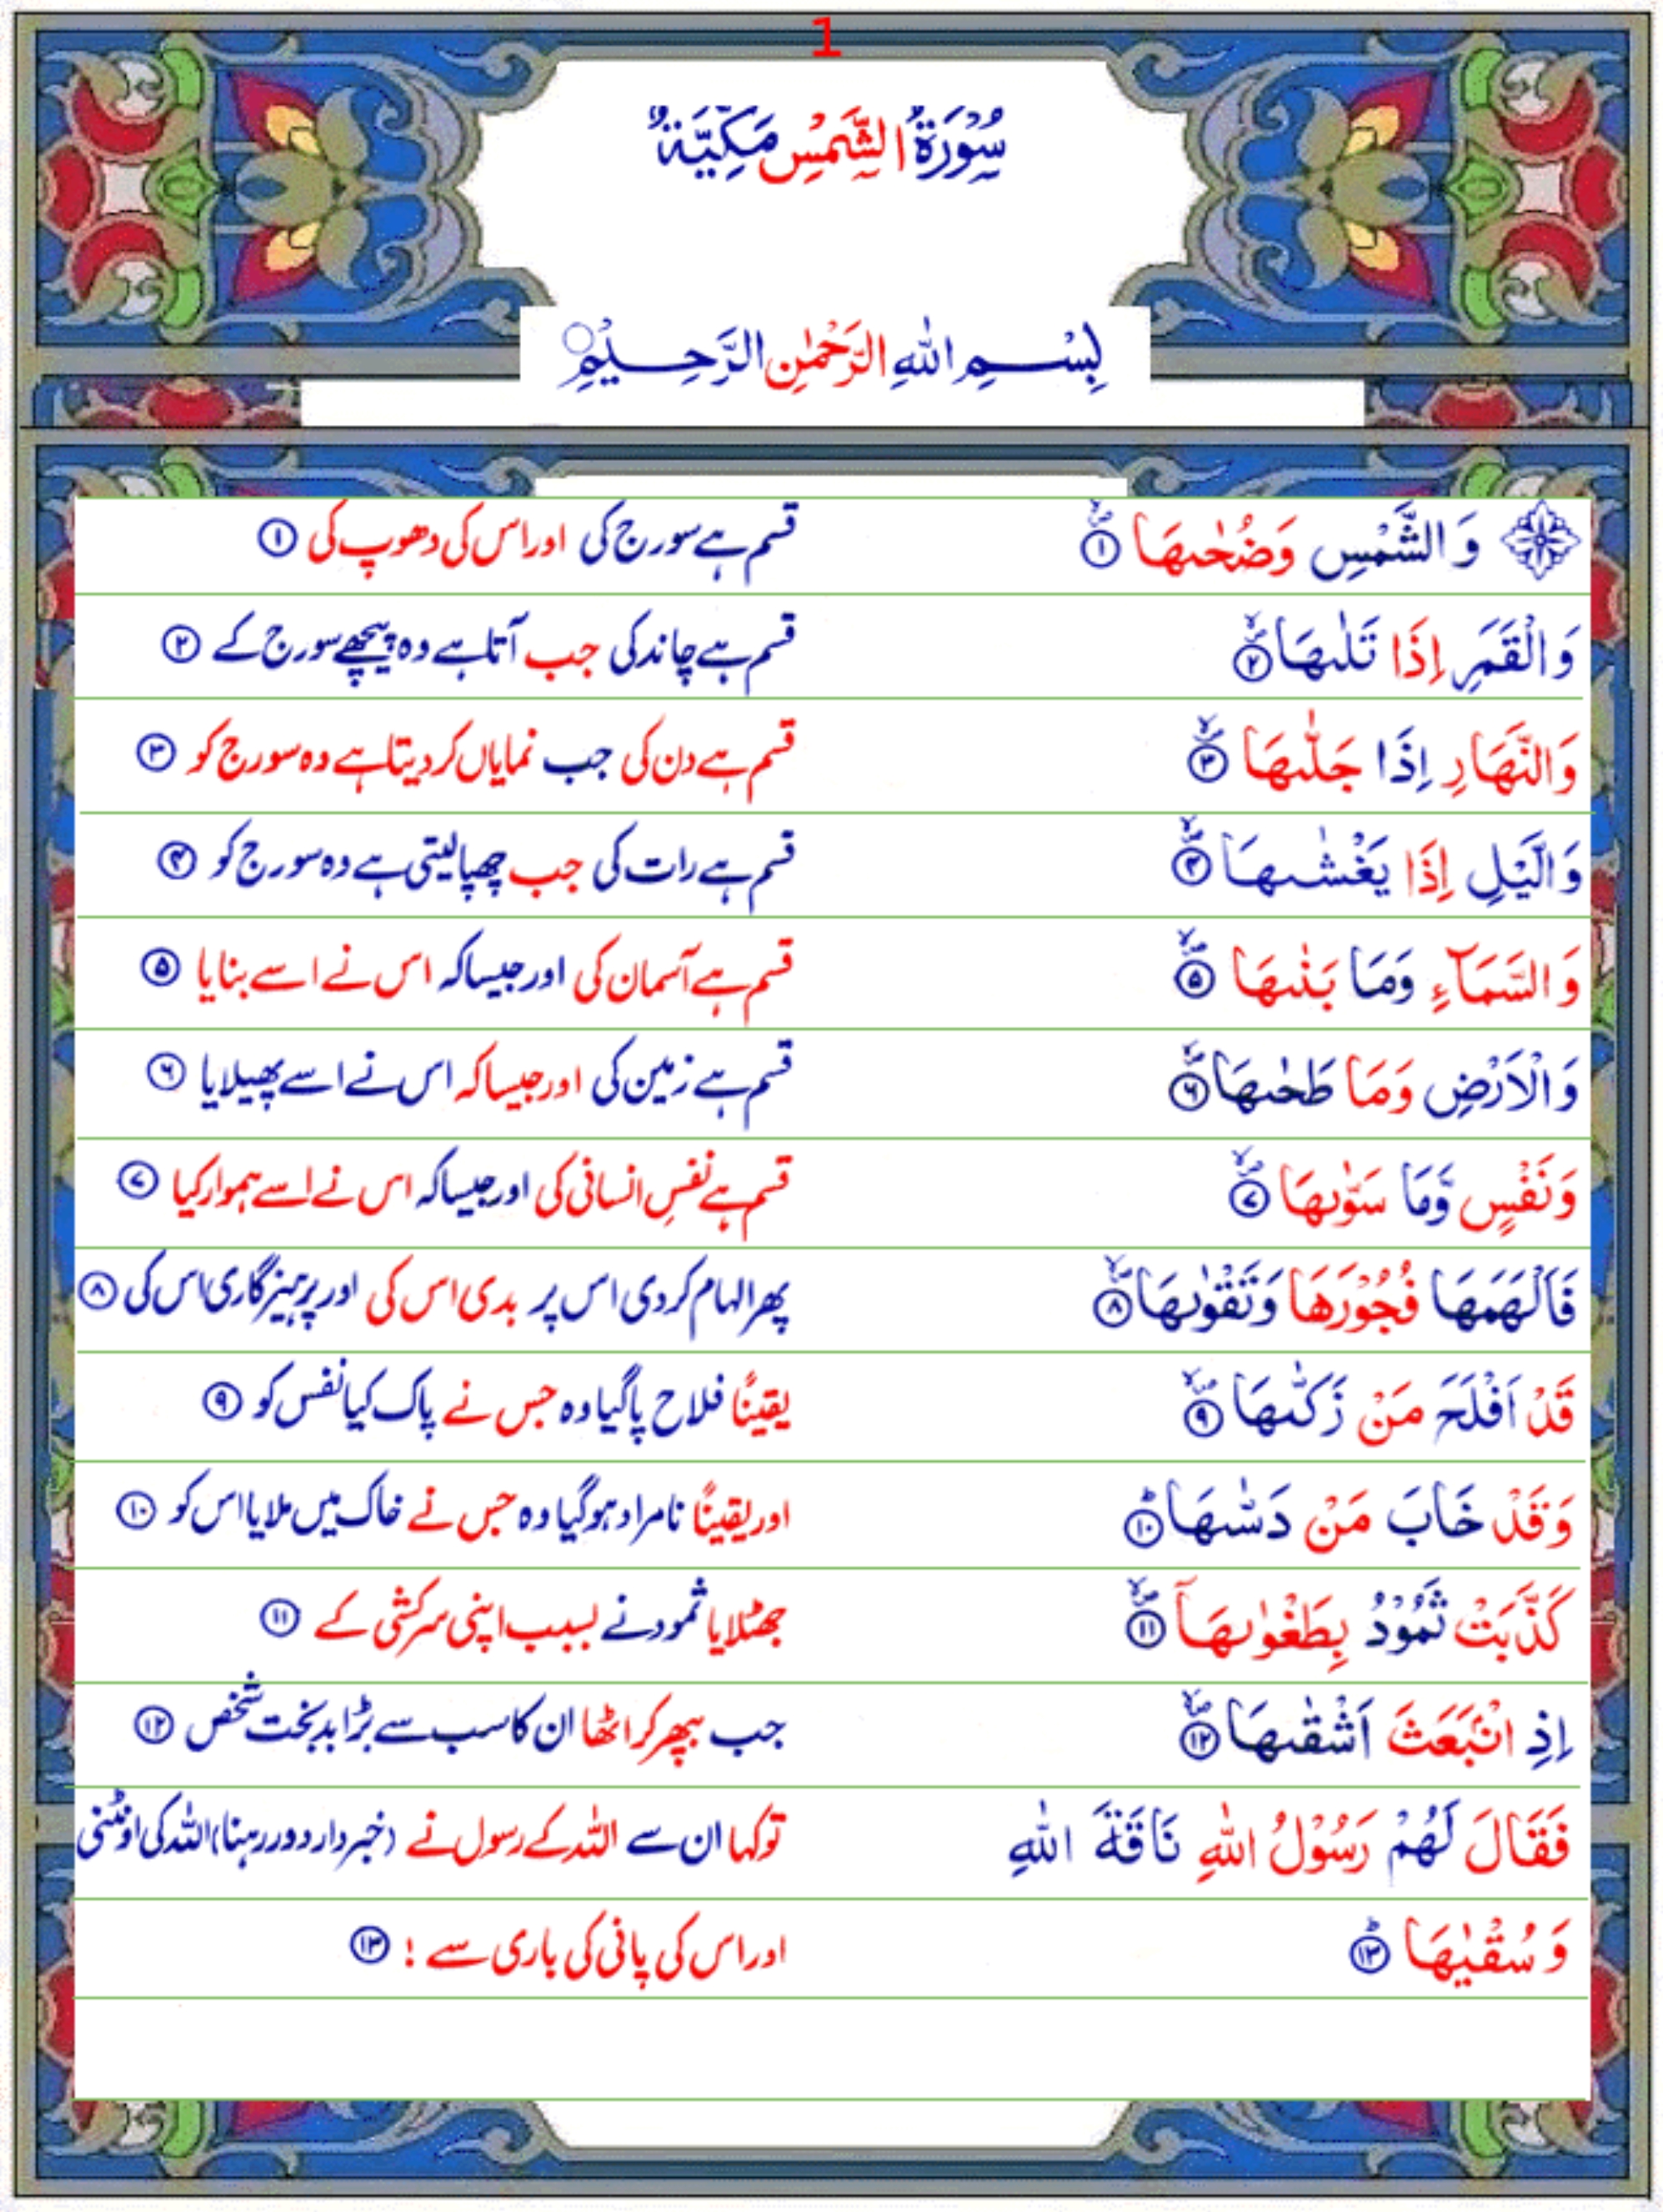 1
سُوْرَةُ الشَّمْسِ مَكِّيَّةٌ
بِسْمِ اللّٰهِ الرَّحْمٰنِ الرَّحِيْمِ
وَالشَّمْسِ وَضُحٰىهَا ۝۱ قسم ہے سورج کی اور اس کی دھوپ کی ۝۱
وَالْقَمَرِ اِذَا تَلٰىهَا ۝۲ قسم ہے چاند کی جب آتا ہے وہ پیچھے سورج کے ۝۲
وَالنَّهَارِ اِذَا جَلّٰىهَا ۝۳ قسم ہے دن کی جب نمایاں کر دیتا ہے وہ سورج کو ۝۳
وَالَّيْلِ اِذَا يَغْشٰىهَا ۝۴ قسم ہے رات کی جب چھپا لیتی ہے وہ سورج کو ۝۴
وَالسَّمَآءِ وَمَا بَنٰىهَا ۝۵ قسم ہے آسمان کی اور جیسا کہ اس نے اسے بنایا ۝۵
وَالْاَرْضِ وَمَا طَحٰىهَا ۝۶ قسم ہے زمین کی اور جیسا کہ اس نے اسے پھیلایا ۝۶
وَنَفْسٍ وَّمَا سَوّٰىهَا ۝۷ قسم ہے نفسِ انسانی کی اور جیسا کہ اس نے اسے ہموار کیا ۝۷
فَاَلْهَمَهَا فُجُوْرَهَا وَتَقْوٰىهَا ۝۸ پھر الہام کر دی اس پر بدی اس کی اور پرہیز گاری اس کی ۝۸
قَدْ اَفْلَحَ مَنْ زَكّٰىهَا ۝۹ یقیناً فلاح پا گیا وہ جس نے پاک کیا نفس کو ۝۹
وَقَدْ خَابَ مَنْ دَسّٰىهَا ۝۱۰ اور یقیناً نامراد ہو گیا وہ جس نے خاک میں ملایا اس کو ۝۱۰
كَذَّبَتْ ثَمُوْدُ بِطَغْوٰىهَآ ۝۱۱ جھٹلایا ثمود نے بسبب اپنی سرکشی کے ۝۱۱
اِذِ انْۢبَعَثَ اَشْقٰىهَا ۝۱۲ جب بپھر کر اٹھا ان کا سب سے بڑا بدبخت شخص ۝۱۲
فَقَالَ لَهُمْ رَسُوْلُ اللّٰهِ نَاقَةَ اللّٰهِ تو کہا ان سے اللہ کے رسول نے (خبردار دور رہنا) اللہ کی اونٹنی
وَسُقْيٰهَا ۝۱۳ اور اس کی پانی کی باری سے ! ۝۱۳